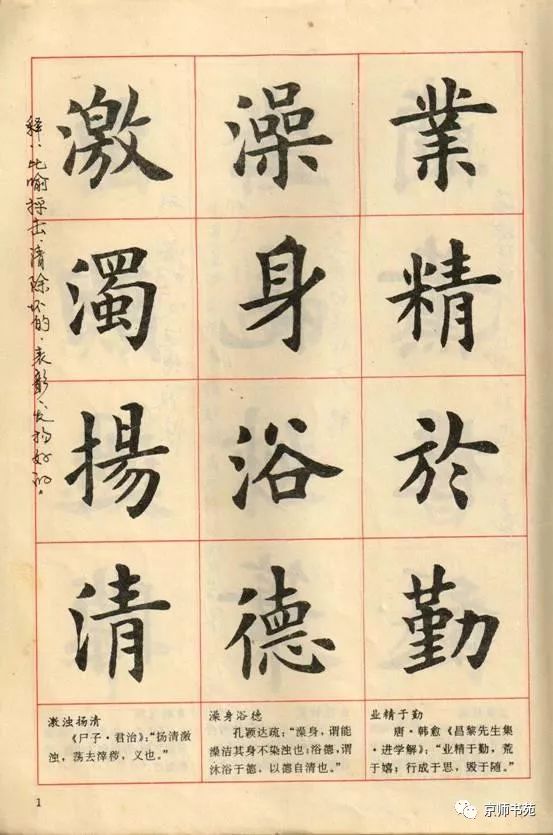 業精於勤
澡身浴德
激濁揚清
释：比喻抨击、清除坏的，表彰、发扬好的。
业精于勤
唐·韩愈《昌黎先生集
·进学解》：“业精于勤，荒
于嬉；行成于思，毁于随。”
澡身浴德
孔颖达疏：“澡身，谓能
澡洁其身不染浊也；浴德，谓
沐浴于德，以德自清也。”
激浊扬清
《尸子·君治》：“扬清激
浊，荡去滓秽，义也。”
1
京师书苑